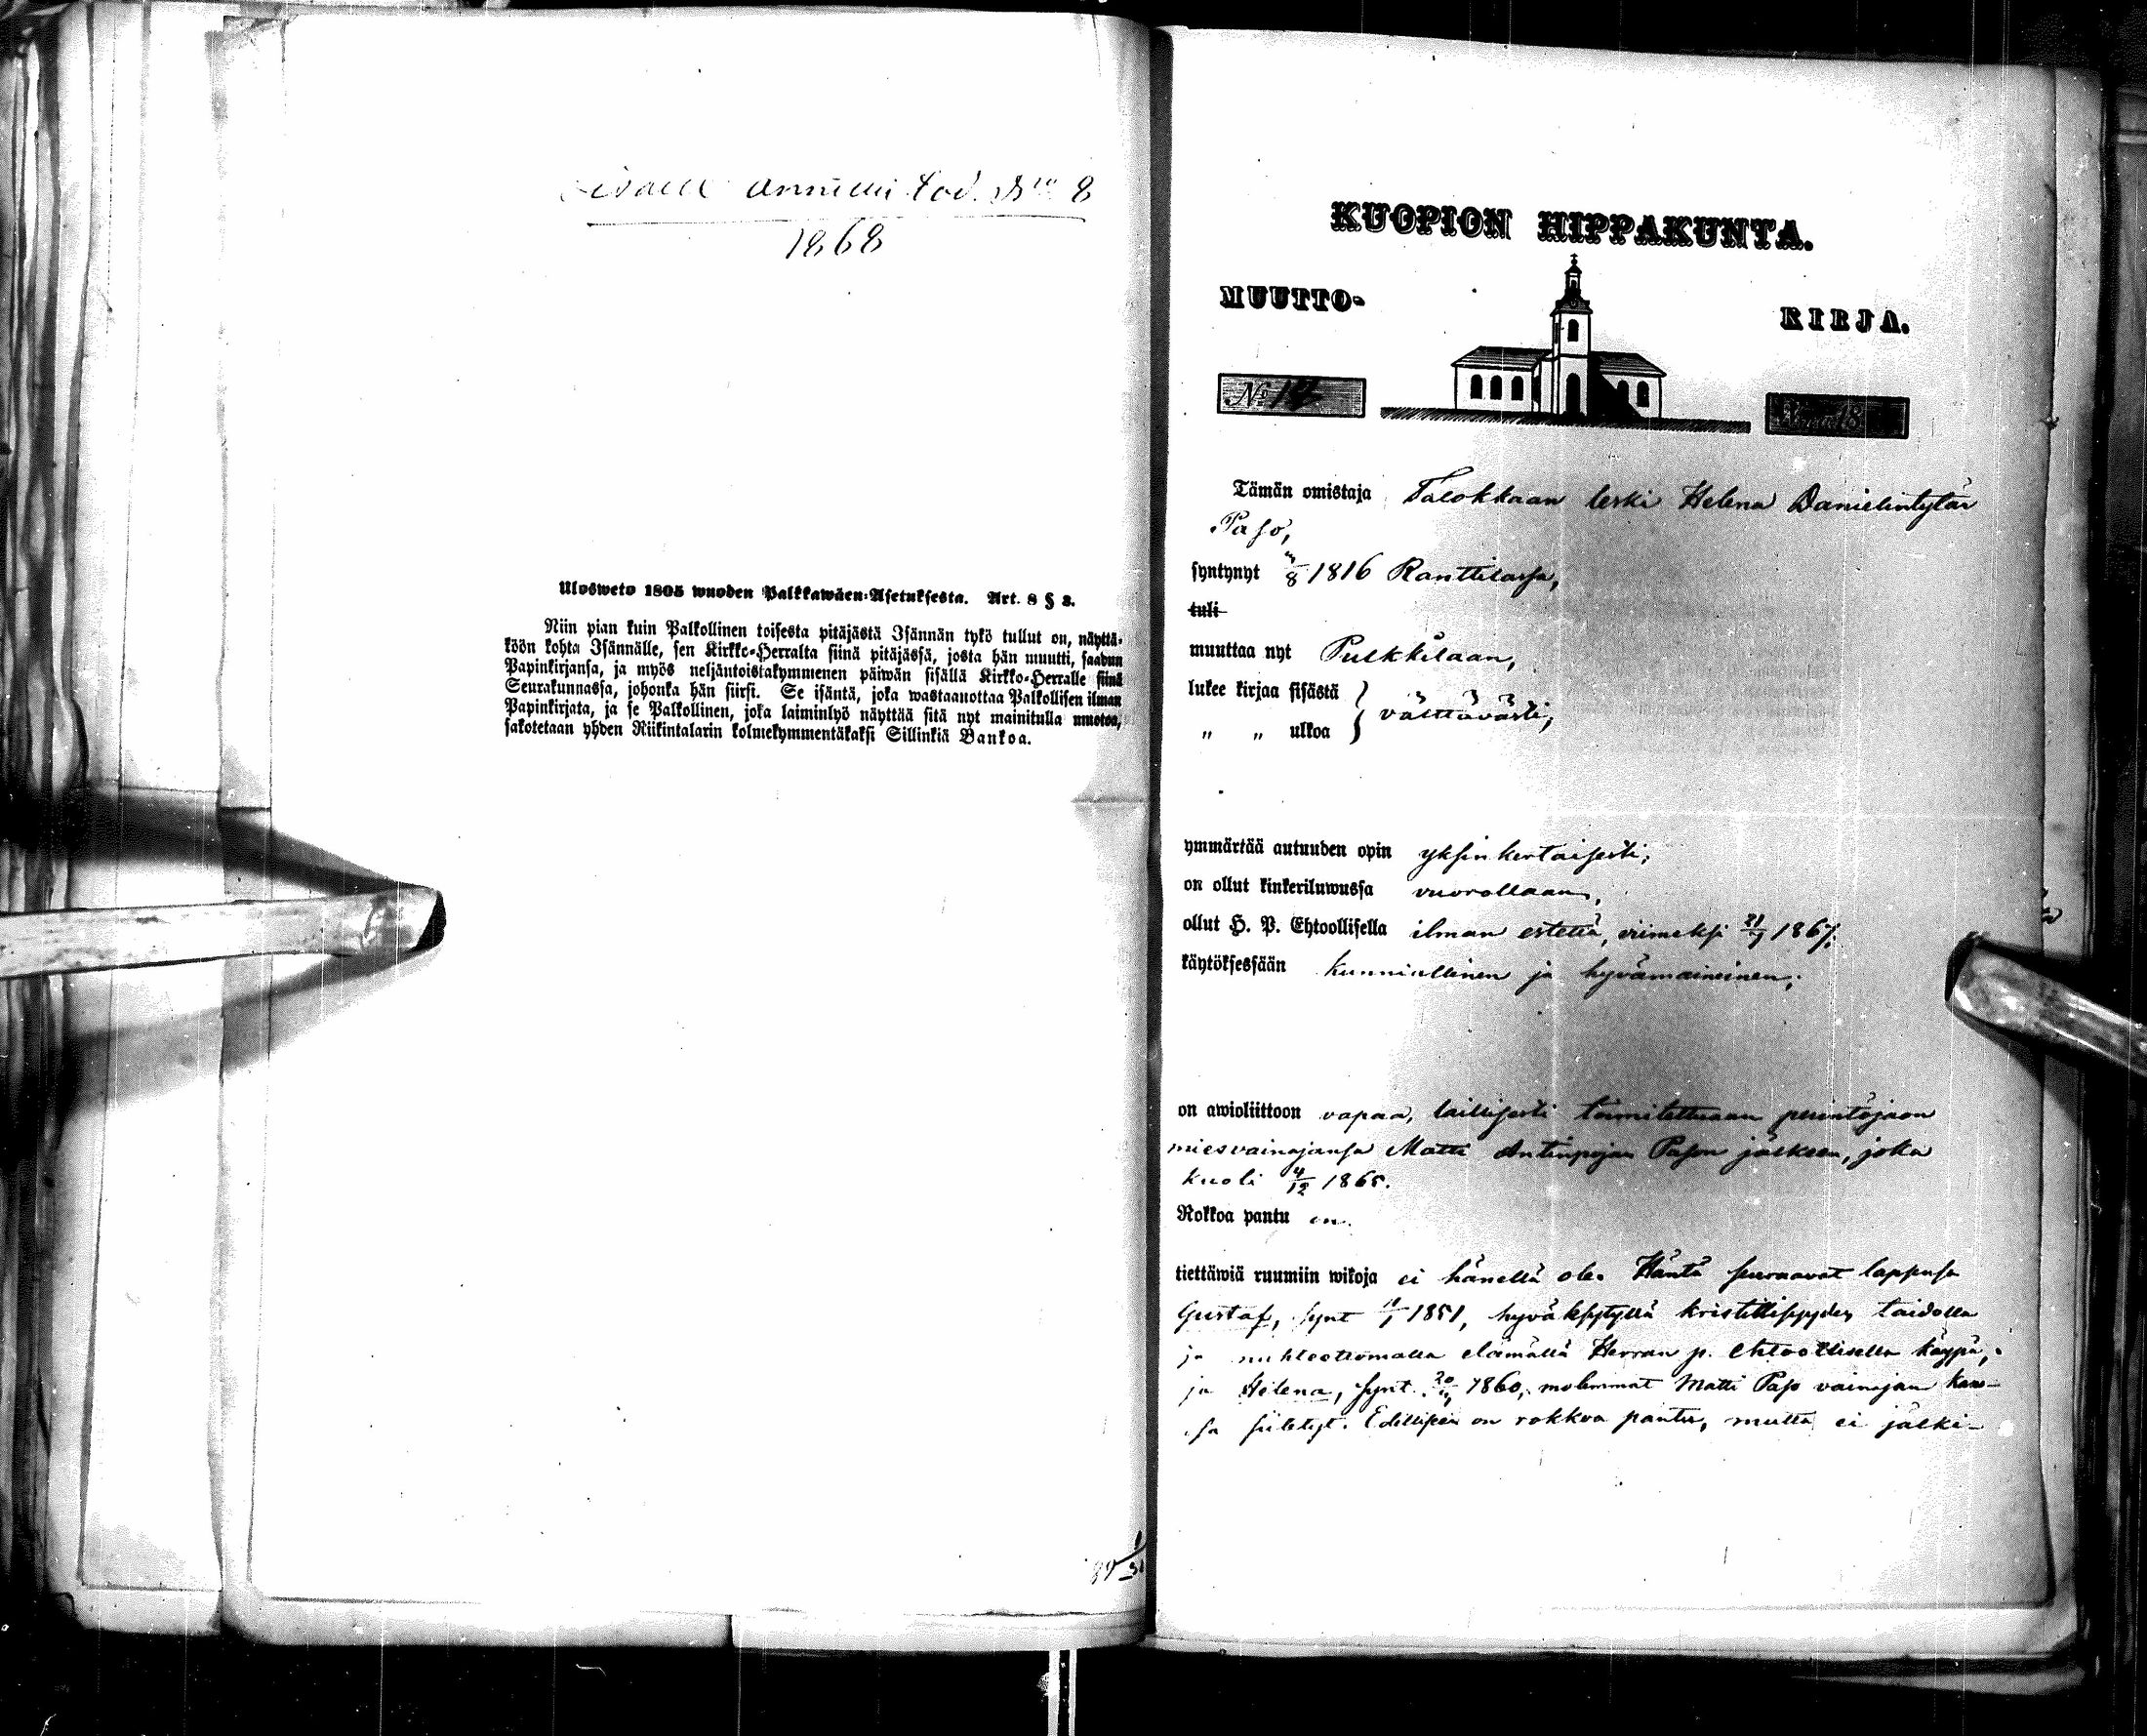 annettu tod. No 8
1868
Ulosweto 1805 wuoden Palkkawäen-Asetuksesta. Art. 8 § 3.
Niin pian kuin Palkollinen toisesta pitäjästä Isännän tykö tullut on, näyttä-
köön kohta Isännälle, sen Kirkko-Herralta siinä pitäjässä, josta hän muutti, saadun
Papinkirjansa, ja myös neljäntoistakymmenen päiwän sisällä Kirkko-Herralle siinä
Seurakunnassa, johonka hän siirsi. Se isäntä, joka wastaanottaa Palkollisen ilman
Papinkirjata, ja se Palkollinen, joka laiminlyö näyttää sitä nyt mainitulla muotoa,
sakotetaan yhden Riikintalarin kolmekymmentäkaksi Sillinkiä Bankoa.
KUOPION HIPPAKUNTA.
MUUTTO-
KIRJA.
No 12
Wuonna 18
Tämän omistaja Talokkaan leski Helena Danielintytär
Paso,
syntynyt 1816 Ranttilassa,
tuli
muuttaa nyt Pulkkilaan,
lukee kirjaa sisästä
" " ulkoa } välttävästi,
ymmärtää autuuden opin yksinkertaisesti,
on ollut kinkeriluwussa vuorollaan,
ollut H. P. Ehtoollisella ilman estettä, viimeksi 1867;
käytöksessään kunniallinen ja hyvämaineinen;
on awioliittoon vapaa, laillisesti toimitettuaan perintöjaon
miesvainajansa Matti Antinpojan Pason jälkeen, joka
kuoli 4/12 1865.
Rokkoa pantu on.
tiettäwiä ruumiin wikoja ei hänellä ole. Häntä seuraavat lapsensa
Gustaf, synt 1851, hyväksytyllä kristillisyyden taidolla
ja nuhteettomalla elämällä Herran p. ehtoollisella käypä,
ja Helena, synt. 1860, molemmat Matti Paso vainajan kans-
sa siitetyt. Edellinen on rokkoa pantu, mutta ei jälki-